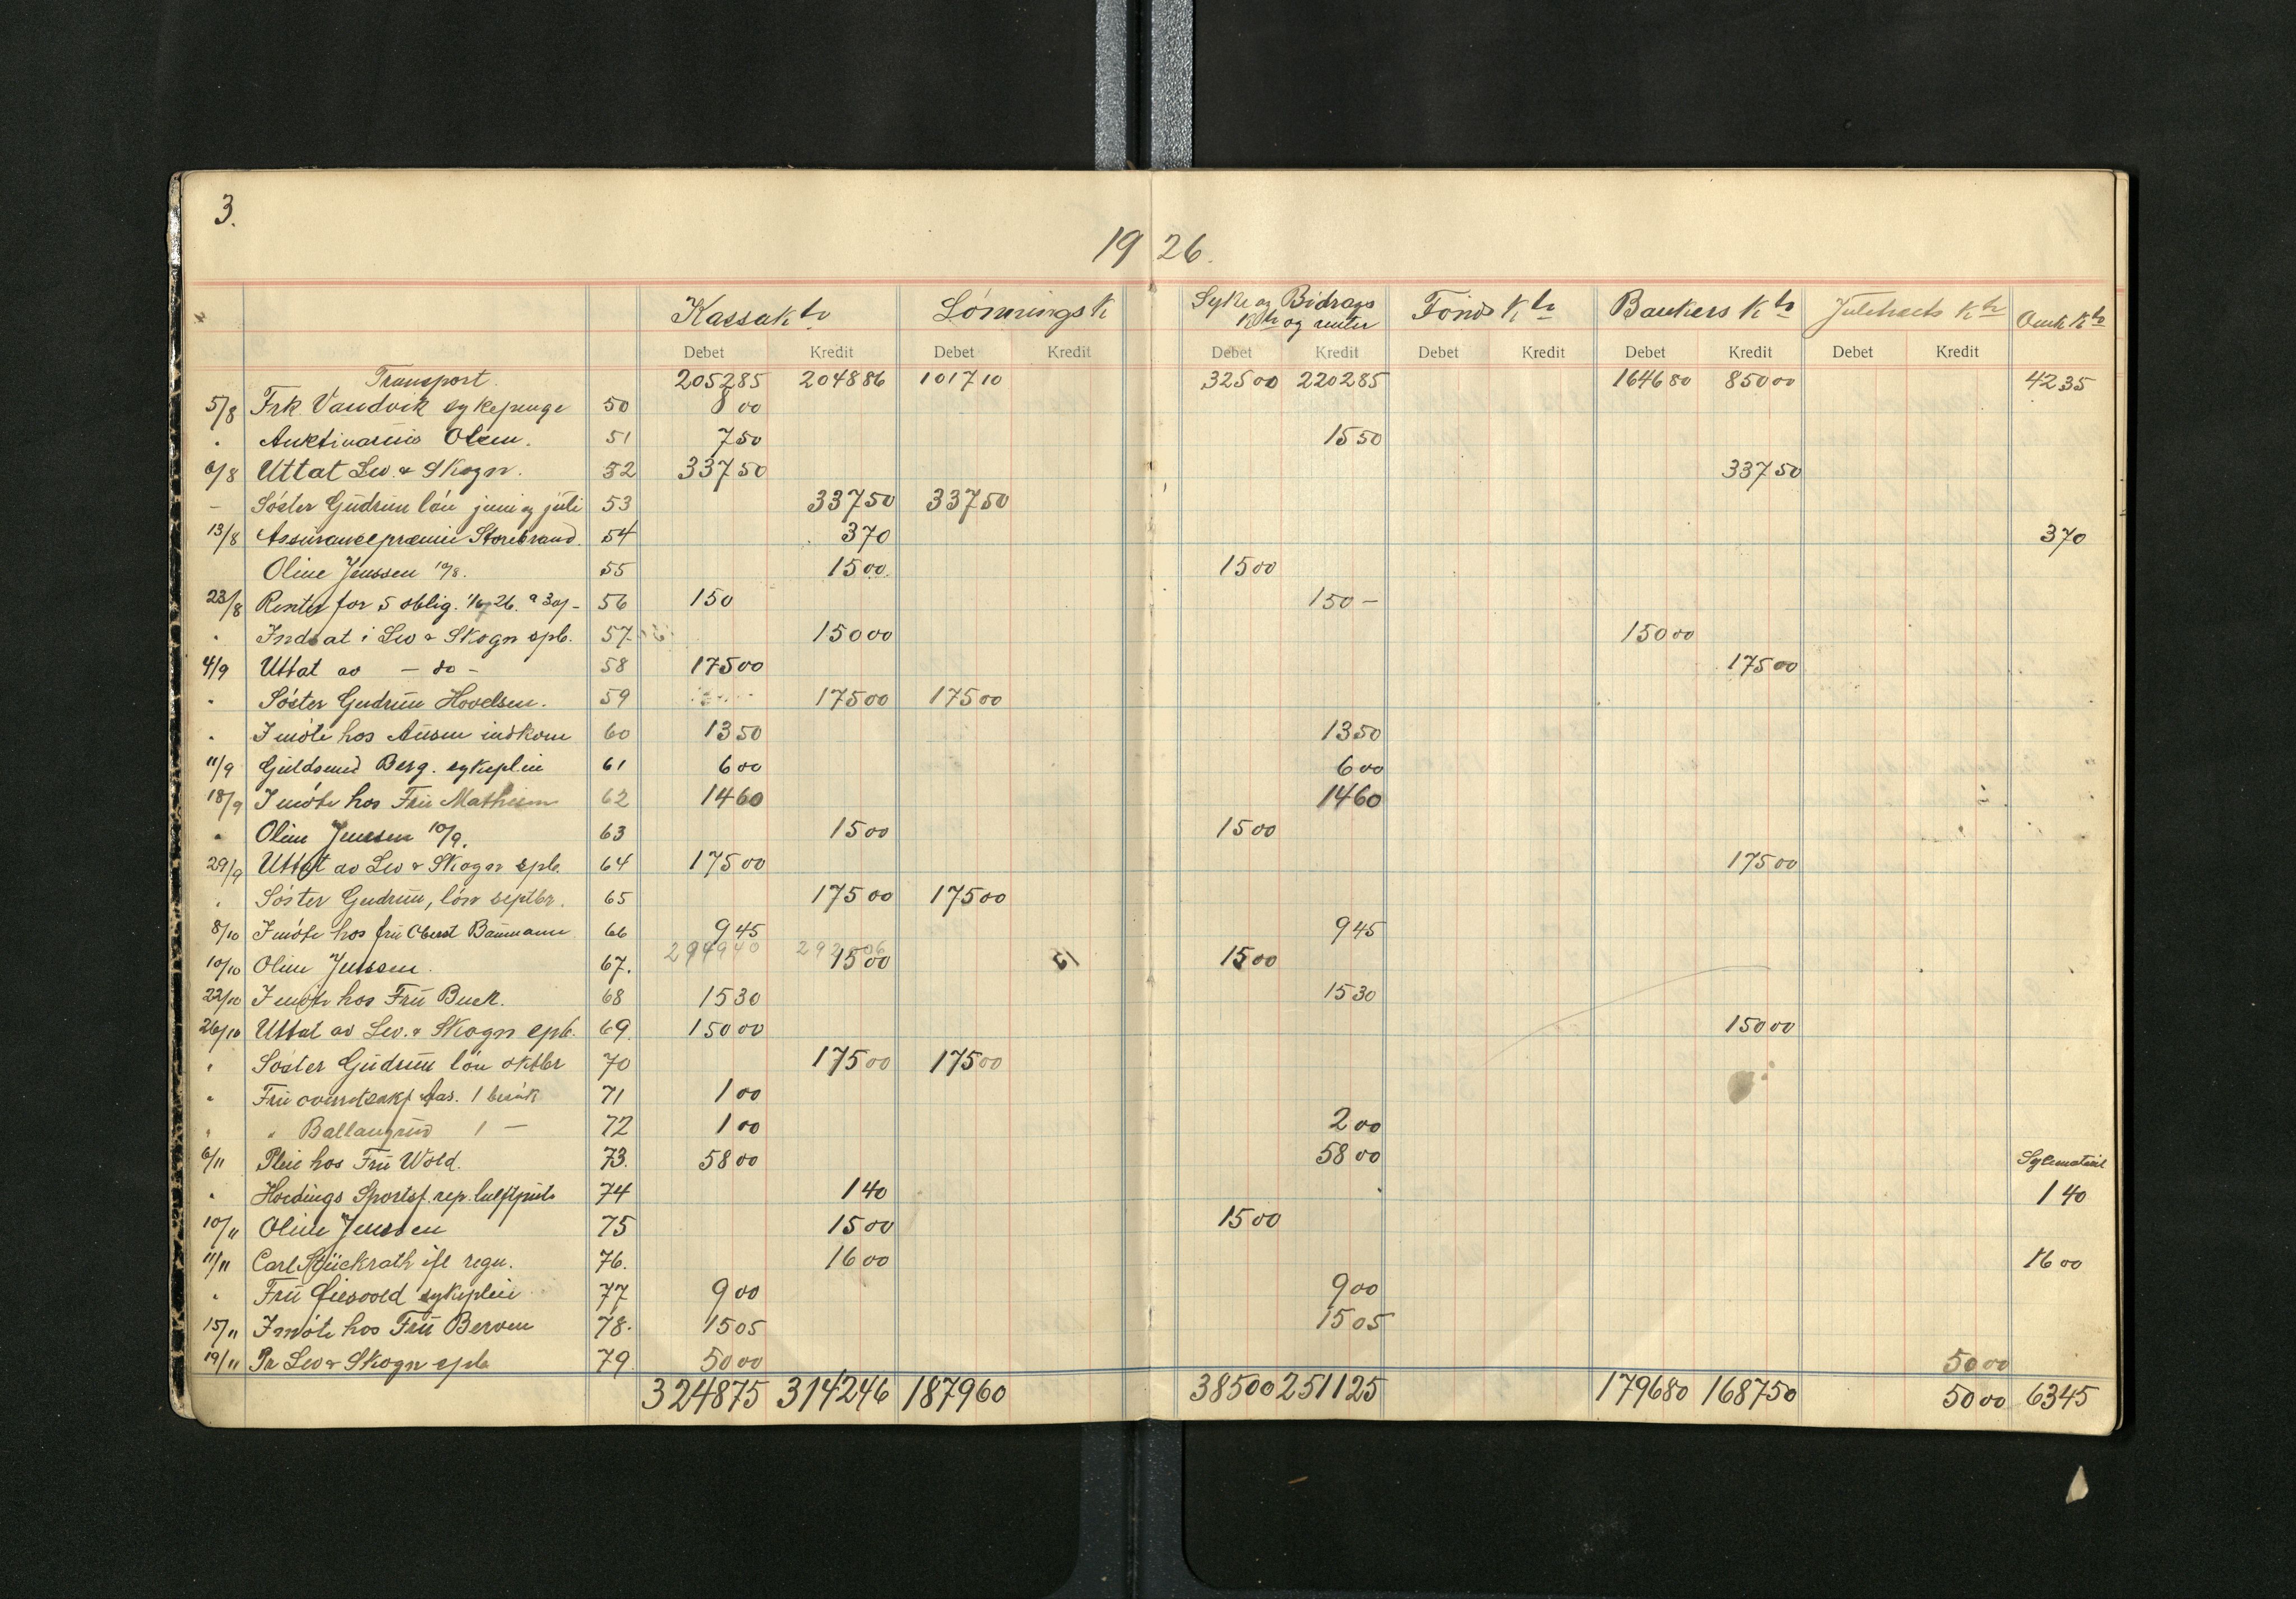 3.
1926.
Kassakto Lønningsk Syke og Bidrags Kto og renter Fonds Kto Bankers Kto Juletræets Kto Omk Kto
Debet Kredit Debet Kredit Debet Kredit Debet Kredit Debet Kredit Debet Kredit
Transport 205285 204886 101710 32500 220285 164680 85000 4235
5/8 Frk Vandvik sykepenge 50 800
" Auktinarius Olsen. 51 750 1550
6/8 Uttat Lev. & Skogn. 52 33750 33750
- Søster Gudrun løn juni og juli 53 33750 33750
13/8 Assurancepræmie Storebrand. 54 370 370
Oline Jenssen 10/8. 55 1500 1500
23/8 Renter for 5 oblig. 26. a 30/- 56 150 150 -
" Indsat i Lev & Skogn spb. 57 15000 15000
4/9 Uttat av - do - 58 17500 17500
" Søster Gudrun Hovelsen. 59 17500 17500
" I møte hos indkom 60 1350 1350
11/9 Guldsmed Berg. sykepleie 61 600 600
18/9 I møte hos Fru Mathisen 62 1460 1460
" Oline Jenssen 10/9. 63 1500 1500
29/9 Uttat av Lev & Skogn spb. 64 17500 17500
" Søster Gudrun, løn septbr. 65 17500 17500
8/10 I møte hos fru Oberst Baumann 66 945 945
294940
10/10 Oline Jenssen. 67. 1500 1500
22/10 I møte hos Fru Buck. 68 1530 1530
26/10 Uttat av Lev. & Skogn spb. 69. 15000 15000
" Søster Gudrun løn oktbr 70 17500 17500
" Fru 1 besøk 71 100
" " Ballangrud 1 - 72 100 200
6/11 Pleie hos Fru Wold. 73. 5800 5800 Sykematriel
" Hoedings Sportsf. rep. luftpute 74 140 140
10/11 Oline Jenssen 75 1500 1500
11/11 Carl Stückrath ifl regn. 76. 1600 1600
" Fru sykepleie 77 900 900
15/11 I møte hos Fru Berven 78. 1505 1505
19/11 Pr Lev & Skogn spb 79. 5000 5000
324875 314246 187960 38500 251125 179680 168750 5000 6345